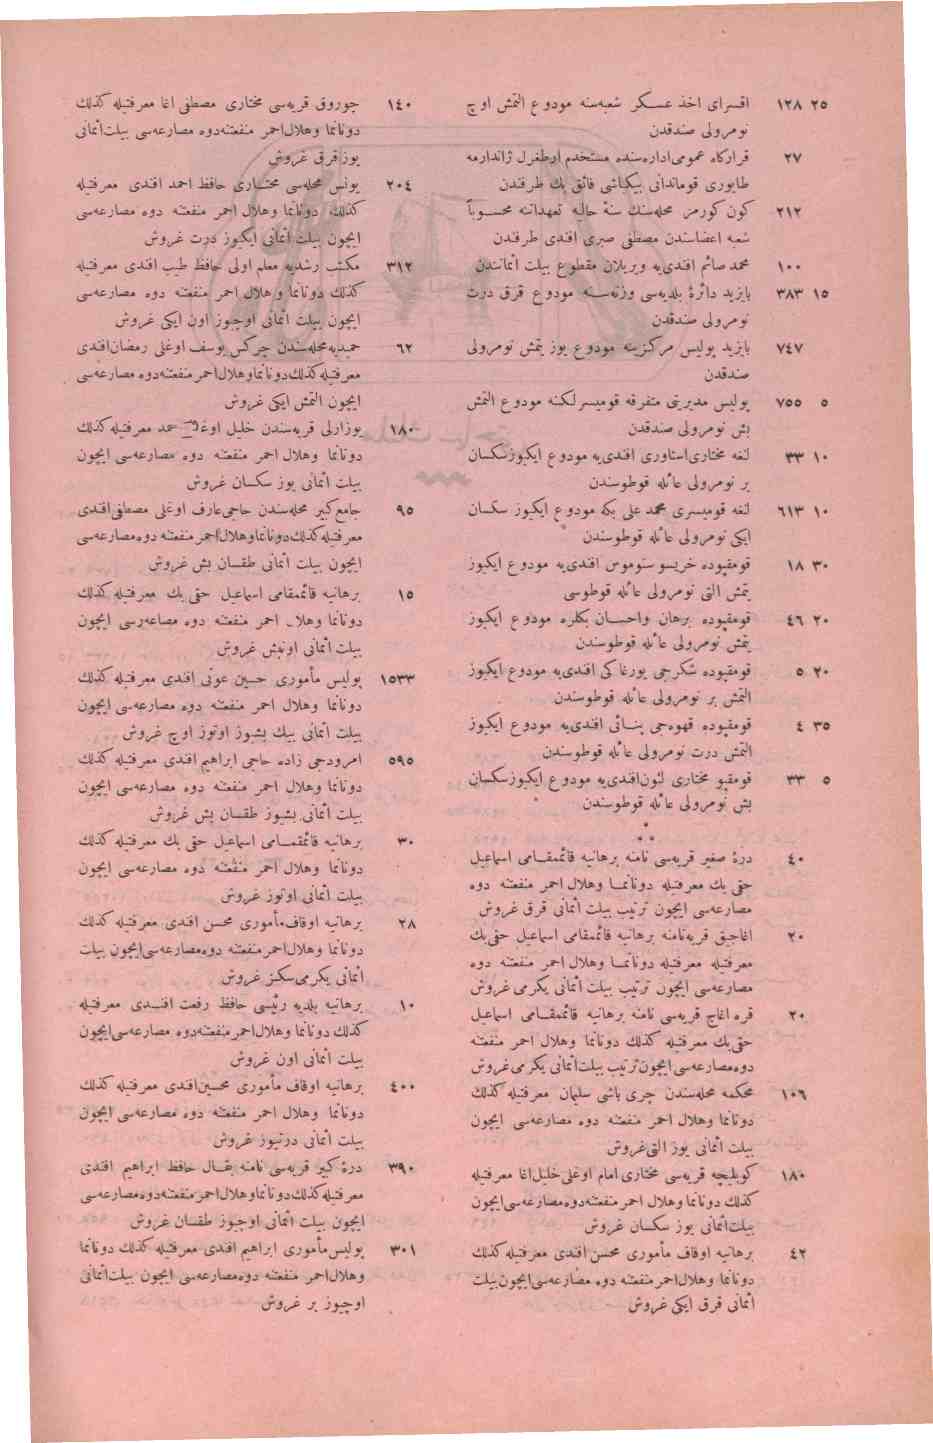 ٢٥ ١٢٨ اقسرای اخذ عسكر شعبه‌سنه مودوع التمش اوچ
نومرولی صندقدن
٢٧ قرارکاه عمومی‌اداره‌سنده مستخدم ارطغرل ژاندارمه
طابوری قوماندانی بیكباشی فائق بك طرفندن
٢١٢ كون كورمز محله‌سنك سنهٔ حالیه تعهداتنه محسوباً
شعبه اعضاسندن مصطفی صبری افندی طرفندن
١٠٠ محمد صائم افندی‌یه ویریلان مقطوع بیلت اثمانندن
١٥ ٣٨٣ بایزید دائرهٔ بلدیه‌سی وزنه‌سنه مودوع قرق درت
نومرولی صندقدن
٧٤٧ بایزید پولیس مركزینه مودوع یوز یتمش نومرولی
صندقدن
٥ ٧٥٥ پولیس مدیریتی متفرقه قومیسرلكنه مودوع التمش
بش نومرولی صندقدن
١٠ ٣٣ لنغه مختاری‌استاوری افندی‌یه مودوع ایكیوزسكسان
بر نومرولی عائله قوطوسندن
١٠ ٦١٣ لنغه قومیسری محمد علی بكه مودوع ایكیوز سكسان
ایكی نومرولی عائله قوطوسندن
٣٠ ١٨ قومقپوده خریسوستوموس افندی‌یه مودوع ایكیوز
یتمش التی نومرولی عائله قوطوسی
٢٠ ٤٦ قومقپوده برهان واحسان بكلره مودوع ایكیوز
یتمش نومرولی عائله قوطوسندن
٢٠ ٥ قومقپوده شكرجی یورغاكی افندی‌یه مودوع ایكیوز
التمش بر نومرولی عائله قوطوسندن
٣٥ ٤ قومقپوده قهوه‌جی پنائی افندی‌یه مودوع ایكیوز
التمش درت نومرولی عائله قوطوسندن
٥ ٣٣ قومقپو مختاری لئون‌افندی‌یه مودوع ایكیوزسكسان
بش نومرولی عائله قوطوسندن
**
٤٠ درهٔ صغیر قریه‌سی نامنه برهانیه قائممقامی اسماعیل
حقی بك معرفتیله دوناﻧﻤﺎ وهلال احمر منفعتنه دوه
مصارعه‌سی ایچون ترتیب بیلت اثمانی قرق غروش
٢٠ اغاجیق قریه‌نامنه برهانیه قائممقامی اسماعیل حقی‌بك
معرفتیله معرفتیله دونانما وهلال احمر منفعتنه دوه
مصارعه‌سی ایچون ترتیب بیلت اثمانی یكرمی غروش
٢٠ قره اغاج قریه‌سی نامنه برهانیه قائممقامی اسماعیل
حقی‌بك معرفتیله كذلك دونانما وهلال احمر منفعتنه
دوه‌مصارعه‌سی ایچون‌ترتیب بیلت‌اثمانی یكرمی غروش
١٠٦ محكمه محله‌سندن چری باشی سلیمان معرفتیله كذلك
دونانما وهلال احمر منفعتنه دوه مصارعه‌سی ایچون
بیلت اثمانی یوز التی‌غروش
١٨٠ كویلیجه قریه‌سی مختاری امام اوغلی‌خلیل‌اغا معرفتیله
كذلك دونانما وهلال احمر منفعتنه‌دوه‌مصارعه‌سی‌ایچون
بیلت‌اثمانی یوز سكسان غروش
٤٢ برهانیه اوقاف مأموری محسن افندی معرفتیله كذلك
دونانما وهلال‌احمر منفعتنه دوه مصارعه‌سی‌ایچون‌بیلت
اثمانی قرق ایكی غروش
١٤٠ چوروق قریه‌سی مختاری مصطفی اغا معرفتیله كذلك
دونانما وهلال‌احمر منفعتنه‌دوه مصارعه‌سی بیلت‌اثمانی
یوزقرق غروش
٢٠٤ یونس محله‌سی مختاری حافظ احمد افندی معرفتیله
كذلك دونانما وهلال احمر منفعتنه دوه مصارعه‌سی
ایچون بیلت اثمانی ایكیوز درت غروش
٣١٢ مكتب رشدیه معلم اولی حافظ طیب افندی معرفتیله
كذلك دونانما وهلال احمر منفعتنه دوه مصارعه‌سی
ایچون بیلت اثمانی اوچیوز اون ایكی غروش
٦٢ حمیدیه‌محله‌سندن چركس یوسف اوغلی رمضان‌افندی
معرفتیله‌كذلك‌دونانماوهلال‌احمرمنفعتنه‌دوه‌مصارعه‌سی
ایچون التمش ایكی غروش
١٨٠ یوزارلی قریه‌سندن خلیل معرفتیله‌كذلك
دونانما وهلال احمر منفعتنه دوه مصارعه‌سی ایچون
بیلت اثمانی یوز سكسان غروش
٩٥ جامع‌كبیر محله‌سندن حاجی‌عارف اوغلی مصطفی‌افندی
معرفتیله‌كذلك‌دونانماوهلال‌احمرمنفعتنه دوه‌مصارعه‌سی
ایچون بیلت اثمانی طقسان بش غروش
١٥ برهانیه قائممقامی اسماعیل حقی بك معرفتیله كذلك
دونانما وهلال احمر منفعتنه دوه مصاعه‌رسی ایچون
بیلت اثمانی اونبش غروش
١٥٣٣ پولیس مأموری حسین عونی افندی معرفتیله كذلك
دونانما وهلال احمر منفعتنه دوه مصارعه‌سی ایچون
بیلت اثمانی بیك بشیوز اوتوز اوچ غروش
٥٩٥ امرودجی زاده حاجی ابراهیم افندی معرفتیله كذلك
دونانما وهلال احمر منفعتنه دوه مصارعه‌سی ایچون
بیلت اثمانی بشیوز طقسان بش غروش
٣٠ برهانیه قائممقامی اسماعیل حقی بك معرفتیله كذلك
دونانما وهلال احمر منفعتنه دوه مصارعه‌سی ایچون
بیلت اثمانی اوتوز غروش
٢٨ برهانیه اوقاف‌مأموری محسن افندی معرفتیله كذلك
دونانما وهلال‌احمر منفعتنه دوه‌مصارعه‌سی‌ایچون بیلت
اثمانی یكرمی‌سكز غروش
١٠ برهانیه بلدیه رئیسی حافظ رفعت افندی معرفتیله
كذلك دونانما وهلال‌احمرمنفعتنه‌دوه مصارعه‌سی‌ایچون
بیلت اثمانی اون غروش
٤٠٠ برهانیه اوقاف مأموری محسین‌افندی معرفتیله كذلك
دونانما وهلال احمر منفعتنه دوه مصارعه‌سی ایچون
بیلت اثمانی درتیوز غروش
٣٩٠ درهٔ كبیر قریه‌سی نامنه بقال حافظ ابراهیم افندی
معرفتیله‌كذلك‌دونانماوهلال‌احمرمنفعتنه‌دوه‌مصارعه‌سی
ایچون بیلت اثمانی اوچیوز طقسان غروش
٣٠١ پولیس‌مأموری ابراهیم افندی معرفتیله كذلك دونانما
وهلال‌احمر منفعتنه دوه‌مصارعه‌سی ایچون بیلت‌اثمانی
اوچیوز بر غروش